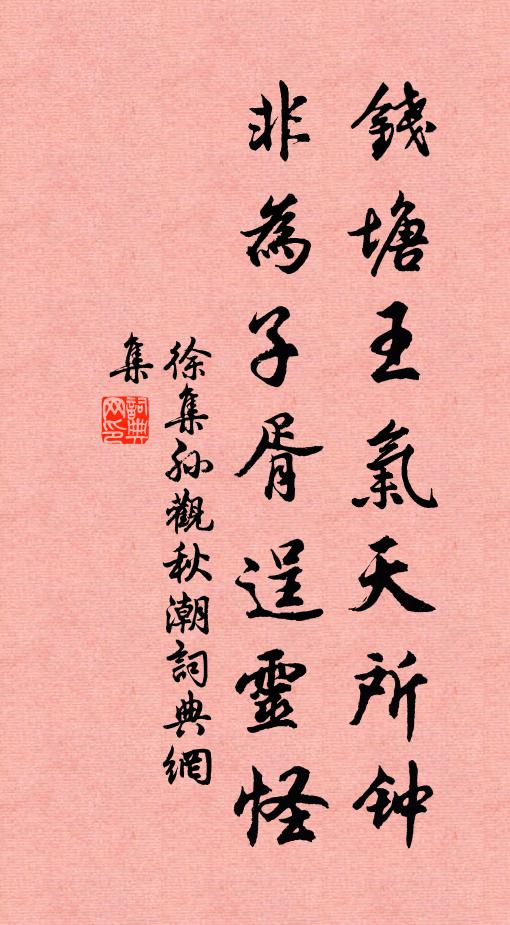 錢塘王氣天所钟
非為子胥逞靈怪
徐集孙觀秋潮詞典網
集
詞典
网印